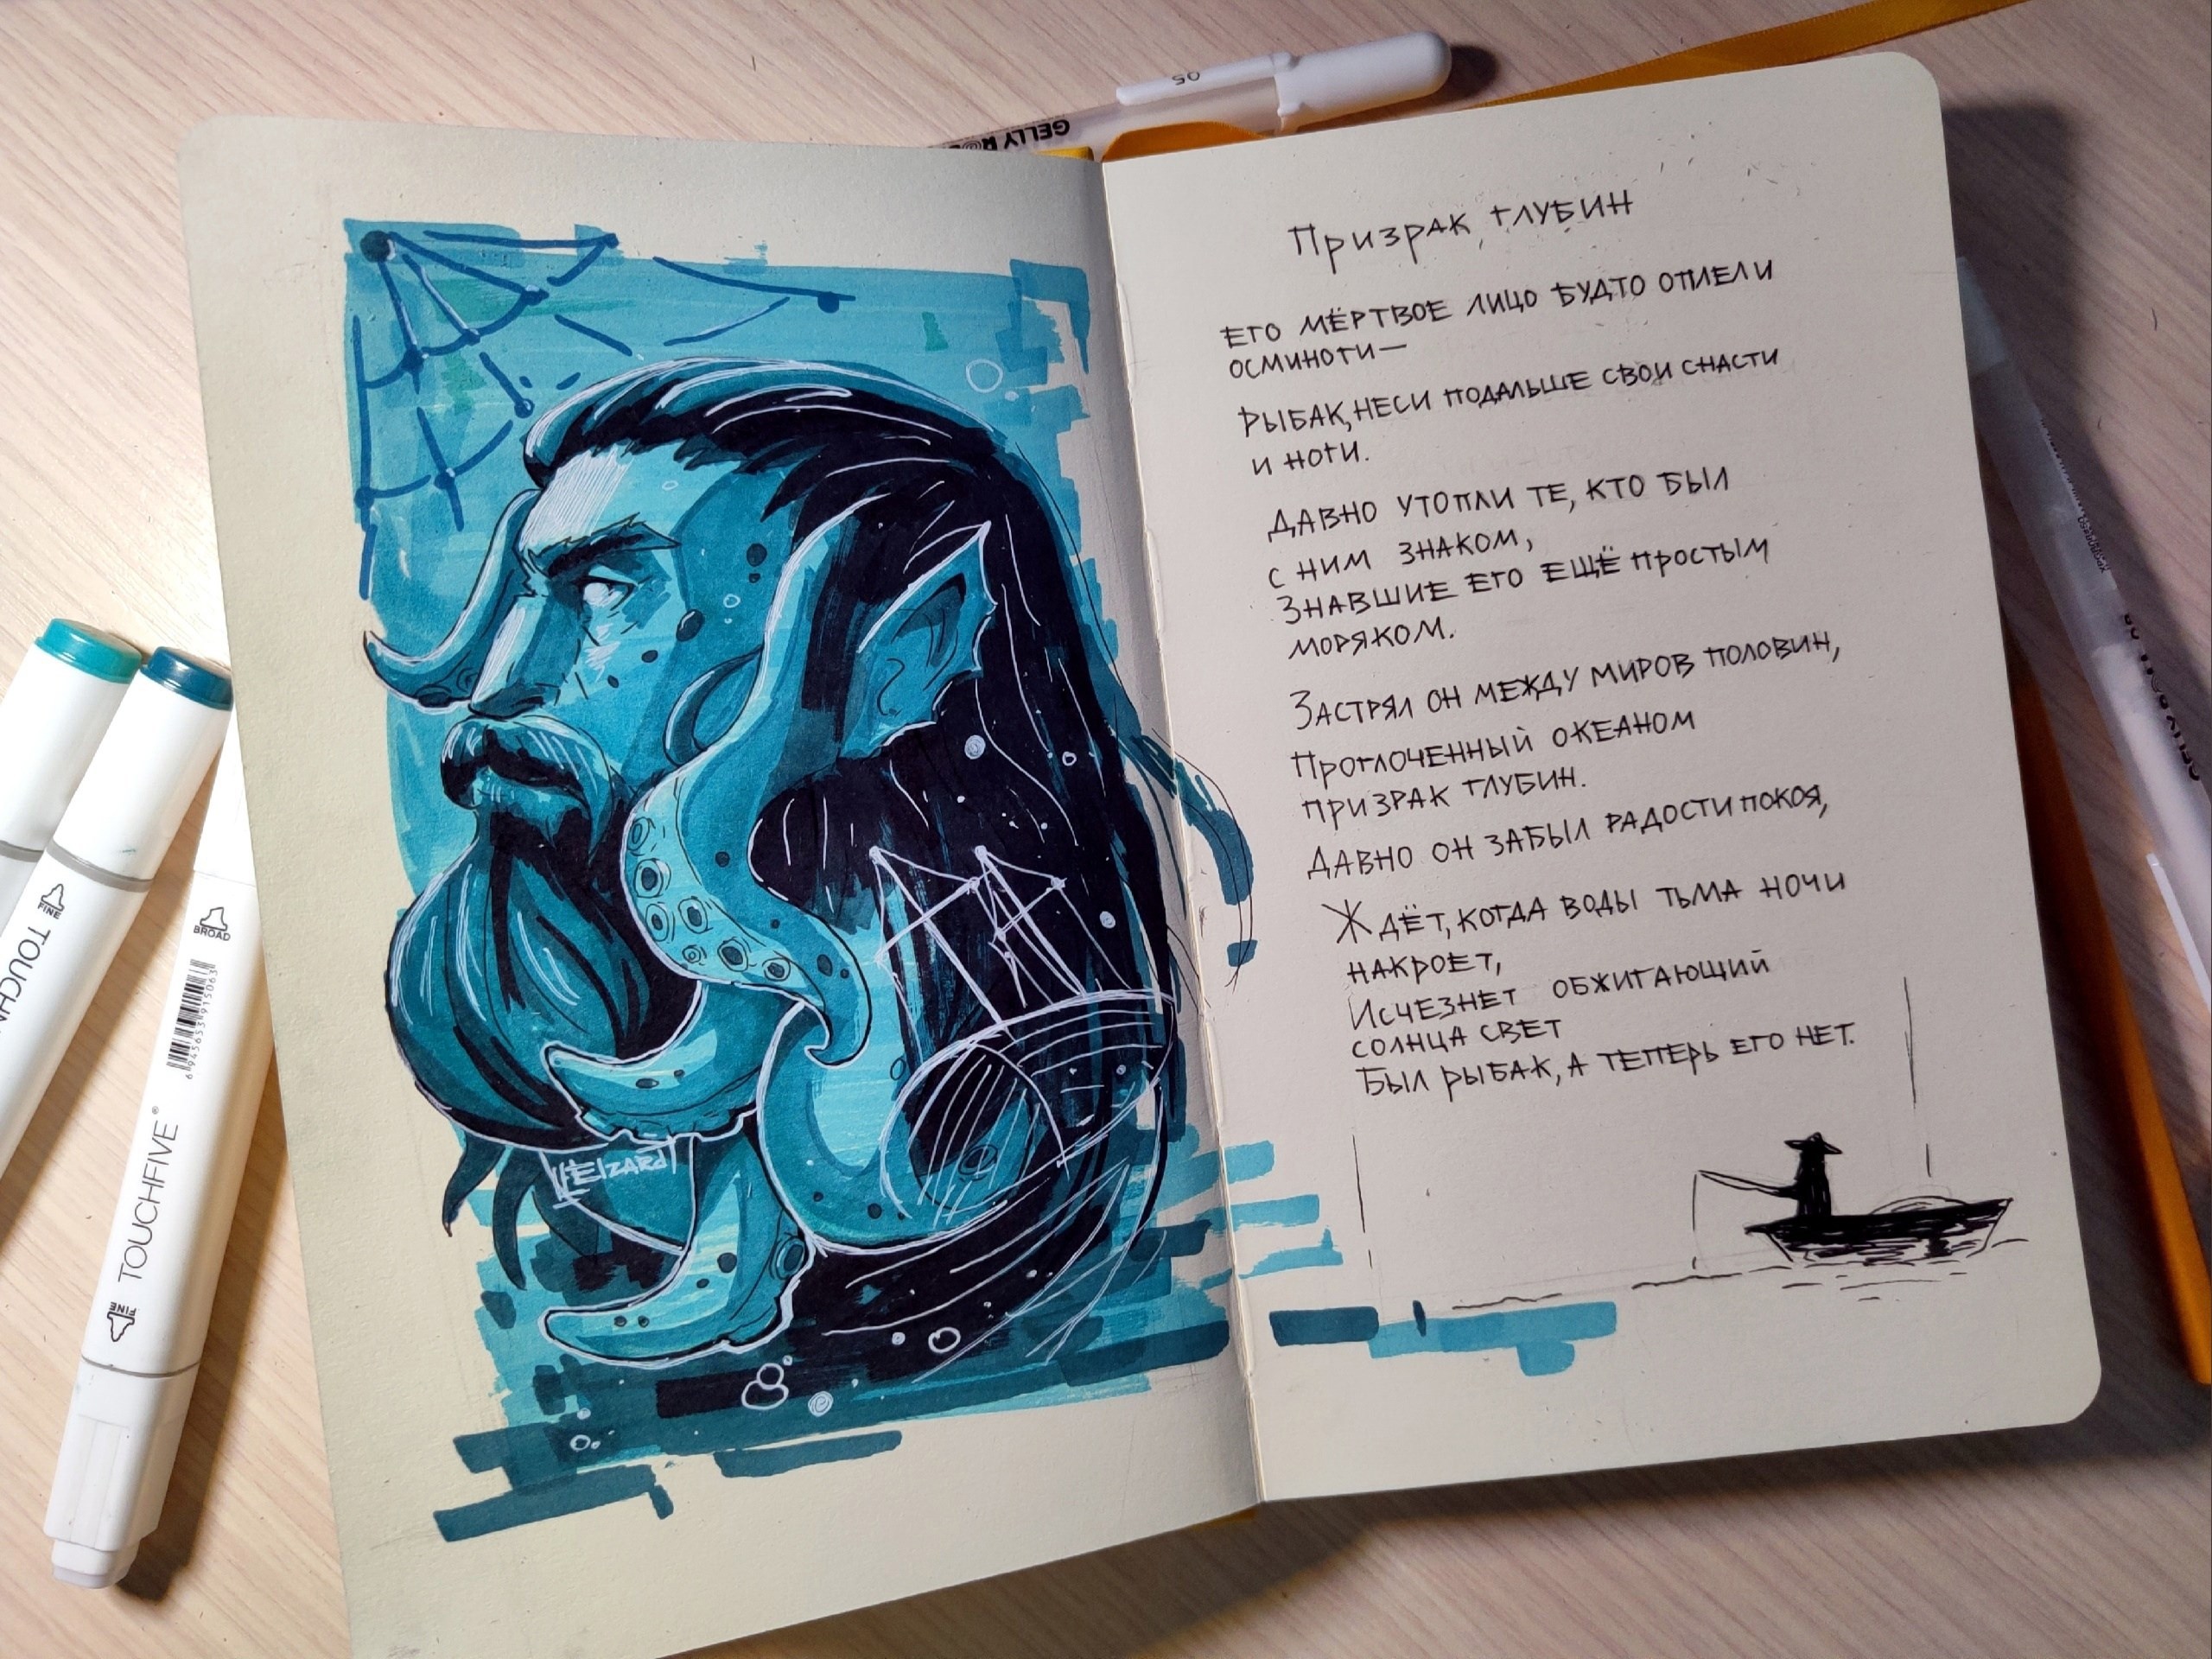 Призрак глубин
ЕГО МЁРТВОЕ ЛИЦО БУДТО ОПЛЕЛИ
ОСМИНОГИ—
РЫБАК, НЕСИ ПОДАЛЬШЕ СВОИ СНАСТИ
И НОГИ.
ДАВНО УТОПЛИ ТЕ, КТО БЫЛ
С НИМ ЗНАКОМ,
ЗНАВШИЕ ЕГО ЕЩЁ ПРОСТЫМ
МОРЯКОМ.
ЗАСТРЯЛ ОН МЕЖДУ МИРОВ ПОЛОВИН,
ПРОГЛОЧЕННЫЙ ОКЕАНОМ
ПРИЗРАК ГЛУБИН.
ДАВНО ОН ЗАБЫЛ РАДОСТИ ПОКОЯ,
ЖДЁТ, КОГДА ВОДЫ ТЬМА НОЧИ
НАКРОЕТ,
ИСЧЕЗНЕТ ОБЖИГАЮЩИЙ
СОЛНЦА СВЕТ
БЫЛ РЫБАК, А ТЕПЕРЬ ЕГО НЕТ.
GELLY ROLL
05
FINE
TOUCH
BROAD
6945653915063
TOUCHFIVE®
FINE